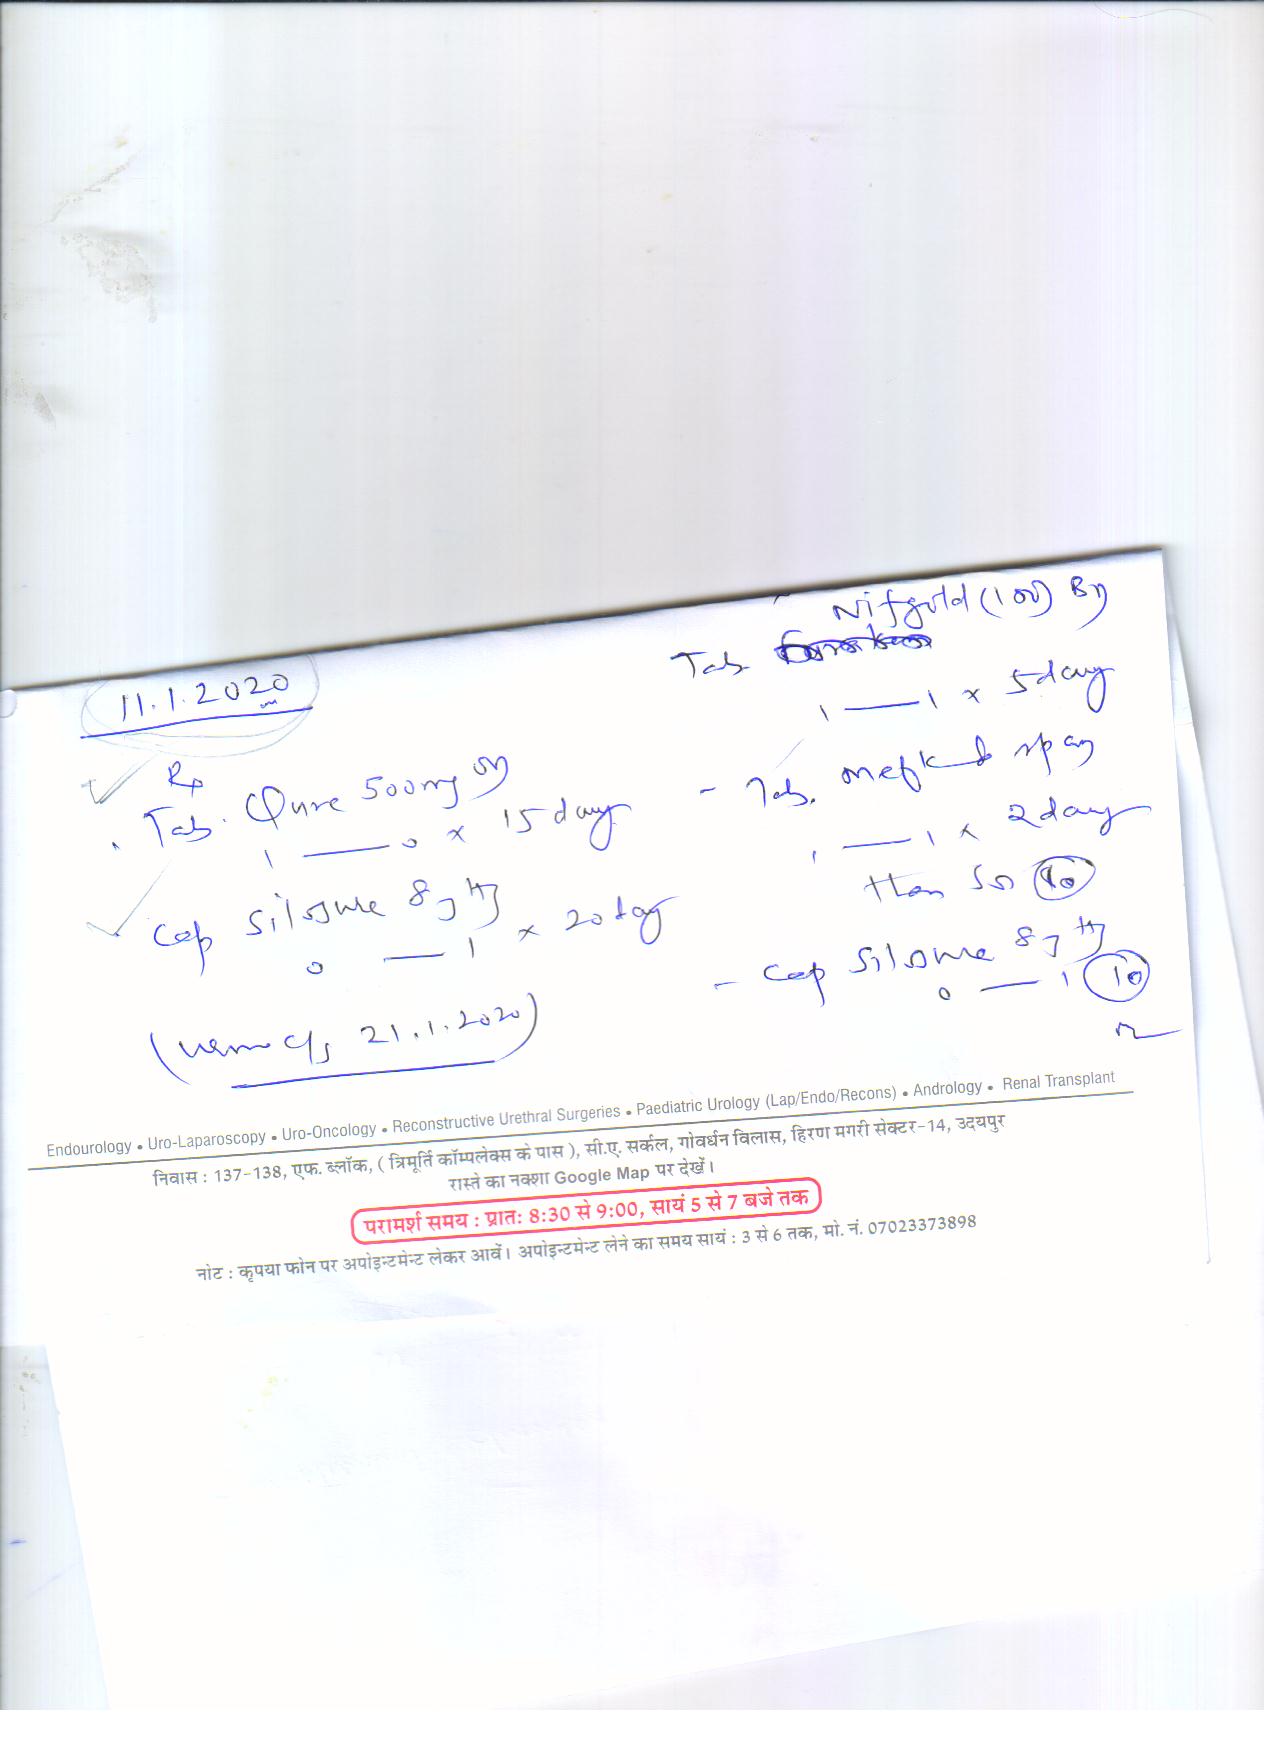 11.1.2020
Rp
Tab. Qure 500mg OD
1 — 0 x 15 day
Cap Silosure 8 mg HS
0 — 1 x 20 day
( 21.1.2020)
Nifgold (100) BD
Tab
1 — 1 x 5 day
- Tab. spas
1 — 1 x 2 day
then SOS 10
- Cap Silosure 8 mg HS
0 — 1 10
Endourology • Uro-Laparoscopy • Uro-Oncology • Reconstructive Urethral Surgeries • Paediatric Urology (Lap/Endo/Recons) • Andrology • Renal Transplant
निवास : 137-138, एफ. ब्लॉक, ( त्रिमूर्ति कॉम्पलेक्स के पास ), सी.ए. सर्कल, गोवर्धन विलास, हिरण मगरी सेक्टर-14, उदयपुर
रास्ते का नक्शा Google Map पर देखें।
परामर्श समय : प्रातः 8:30 से 9:00, सायं 5 से 7 बजे तक
नोट : कृपया फोन पर अपोइन्टमेन्ट लेकर आवें। अपोइन्टमेन्ट लेने का समय सायं : 3 से 6 तक, मो. नं. 07023373898